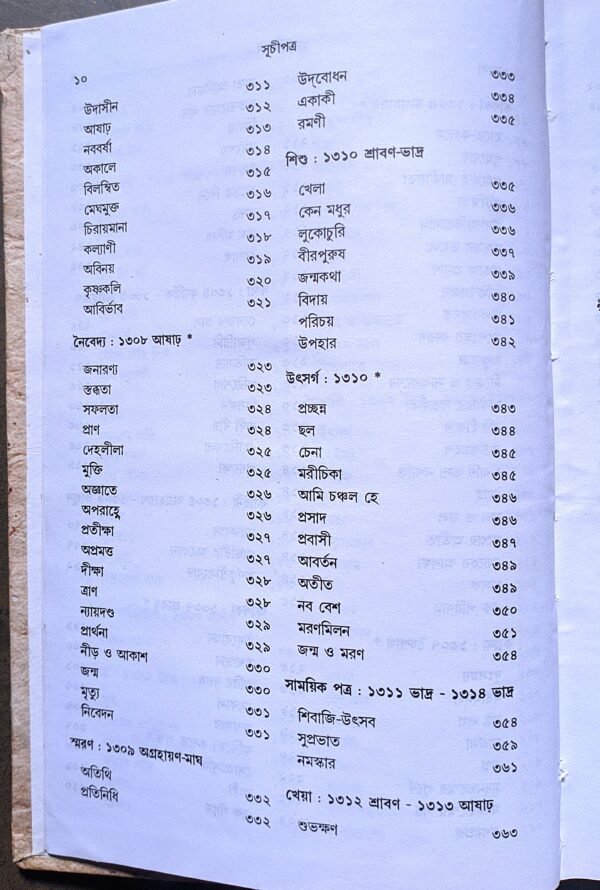 সূচীপত্র
১০
উদাসীন ৩১১
আষাঢ় ৩১২
নববর্ষা ৩১৩
অকালে ৩১৪
বিলম্বিত ৩১৫
মেঘমুক্ত ৩১৬
চিরায়মানা ৩১৭
কল্যাণী ৩১৮
অবিনয় ৩১৯
কৃষ্ণকলি ৩২০
আবির্ভাব ৩২১
নৈবেদ্য : ১৩০৮ আষাঢ় *
জনারণ্য ৩২৩
স্তব্ধতা ৩২৩
সফলতা ৩২৪
প্রাণ ৩২৪
দেহলীলা ৩২৫
মুক্তি ৩২৫
অজ্ঞাতে ৩২৬
অপরাহ্ণে ৩২৬
প্রতীক্ষা ৩২৭
অপ্রমত্ত ৩২৭
দীক্ষা ৩২৮
ত্রাণ ৩২৮
ন্যায়দণ্ড ৩২৯
প্রার্থনা ৩২৯
নীড় ও আকাশ ৩৩০
জন্ম ৩৩০
মৃত্যু ৩৩১
নিবেদন ৩৩১
স্মরণ : ১৩০৯ অগ্রহায়ণ-মাঘ
অতিথি ৩৩২
প্রতিনিধি ৩৩২
উদ্‌বোধন ৩৩৩
একাকী ৩৩৪
রমণী ৩৩৫
শিশু : ১৩১০ শ্রাবণ-ভাদ্র
খেলা ৩৩৫
কেন মধুর ৩৩৬
লুকোচুরি ৩৩৬
বীরপুরুষ ৩৩৭
জন্মকথা ৩৩৯
বিদায় ৩৪০
পরিচয় ৩৪১
উপহার ৩৪২
উৎসর্গ : ১৩১০ *
প্রচ্ছন্ন ৩৪৩
ছল ৩৪৪
চেনা ৩৪৫
মরীচিকা ৩৪৫
আমি চঞ্চল হে ৩৪৬
প্রসাদ ৩৪৬
প্রবাসী ৩৪৭
আবর্তন ৩৪৯
অতীত ৩৪৯
নব বেশ ৩৫০
মরণমিলন ৩৫১
জন্ম ও মরণ ৩৫৪
সাময়িক পত্র : ১৩১১ ভাদ্র - ১৩১৪ ভাদ্র
শিবাজি-উৎসব ৩৫৪
সুপ্রভাত ৩৫৯
নমস্কার ৩৬১
খেয়া : ১৩১২ শ্রাবণ - ১৩১৩ আষাঢ়
শুভক্ষণ ৩৬৩